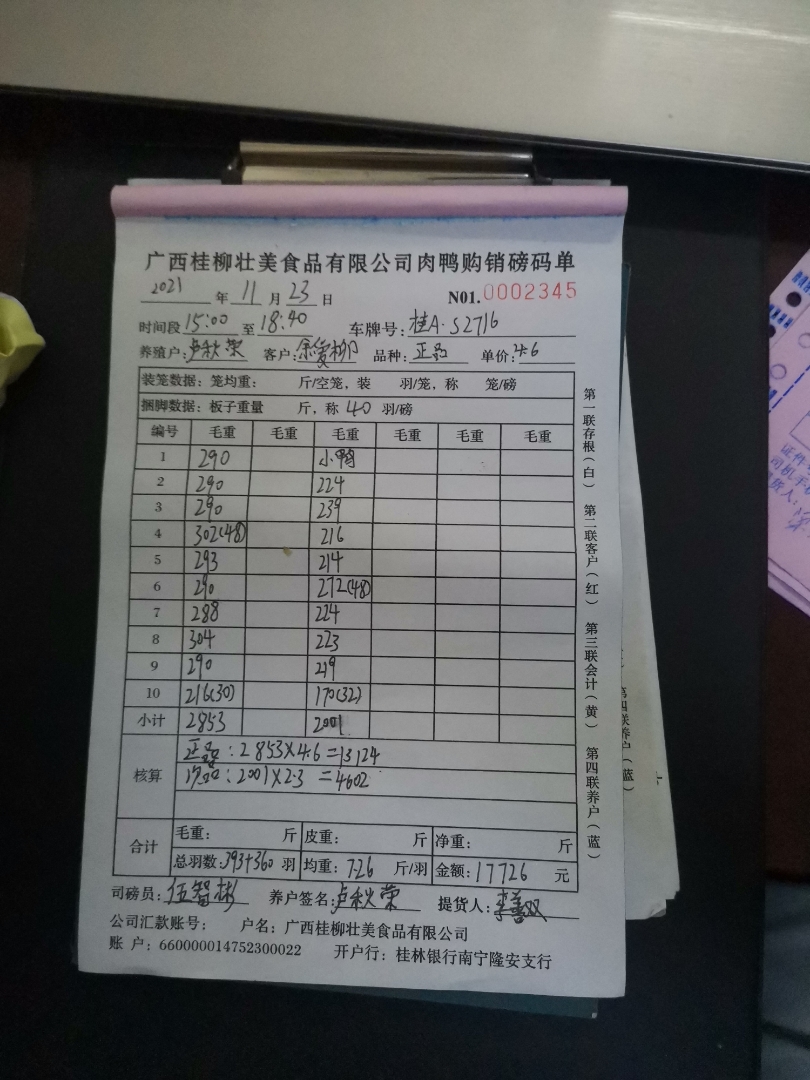 广西桂柳壮美食品有限公司肉鸭购销磅码单
2021 年 11 月 23 日 N01.0002345
时间段 15:00 至 18:40 车牌号: 桂A·S2716
养殖户: 卢秋荣 客户: 余爱柳 品种: 正品 单价: 4.6
装笼数据: 笼均重: 斤/空笼, 装 羽/笼, 称 笼/磅
捆脚数据: 板子重量 斤, 称 40 羽/磅
编号 毛重 毛重 毛重 毛重 毛重 毛重
1 290 小鸭
2 290 224
3 290 239
4 302(48) 216
5 293 214
6 290 272(48)
7 288 224
8 304 223
9 290 219
10 216(30) 170(32)
小计 2853 2001
核算
正品: 2853×4.6=13124
次品: 2001×2.3=4602
合计
毛重: 斤 皮重: 斤 净重: 斤
总羽数: 393+360 羽 均重: 7.26 斤/羽 金额: 17726 元
司磅员: 伍智彬 养户签名: 卢秋荣 提货人: 李善双
公司汇款账号: 户名: 广西桂柳壮美食品有限公司
账 户: 660000014752300022 开户行: 桂林银行南宁隆安支行
第一联存根(白) 第二联客户(红) 第三联会计(黄) 第四联养户(蓝)
第四联养户(蓝)
证件
司机手机